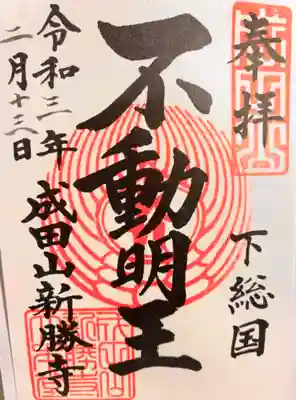 奉拝
下総国
不動明王
成田山新勝寺
令和三年
二月十三日